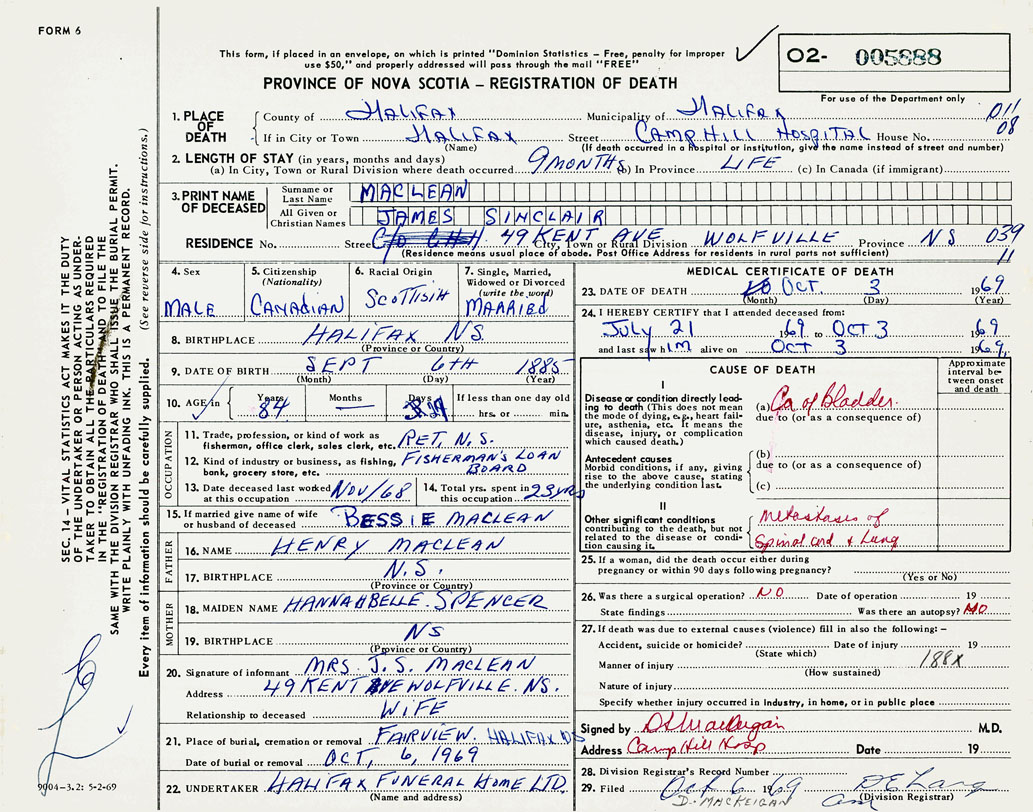 FORM 6
This form, if placed in an envelope, on which is printed "Dominion Statistics – Free, penalty for improper
use $50," and properly addressed will pass through the mail "FREE"
O2- 005888
For use of the Department only
PROVINCE OF NOVA SCOTIA – REGISTRATION OF DEATH
1. PLACE OF DEATH County of HALIFAX Municipality of HALIFAX 011
If in City or Town HALIFAX Street CAMP HILL HOSPITAL House No. 08
(Name) (If death occurred in a hospital or institution, give the name instead of street and number)
2. LENGTH OF STAY (in years, months and days)
(a) In City, Town or Rural Division where death occurred 9 MONTHS (b) In Province LIFE (c) In Canada (if immigrant)
3. PRINT NAME OF DECEASED Surname or Last Name MACLEAN
All Given or Christian Names JAMES SINCLAIR
RESIDENCE No. Street C/O 49 KENT AVE City, Town or Rural Division WOLFVILLE Province NS 039
(Residence means usual place of abode. Post Office Address for residents in rural parts not sufficient) 11
4. Sex MALE
5. Citizenship (Nationality) CANADIAN
6. Racial Origin SCOTTISH
7. Single, Married, Widowed or Divorced (write the word) MARRIED
8. BIRTHPLACE HALIFAX N.S.
(Province or Country)
9. DATE OF BIRTH SEPT 6TH 1885
(Month) (Day) (Year)
10. AGE in Years 84 Months — Days 27 If less than one day old
hrs. or min.
OCCUPATION
11. Trade, profession, or kind of work as fisherman, office clerk, sales clerk, etc. RET, N.S.
12. Kind of industry or business, as fishing, bank, grocery store, etc. FISHERMAN'S LOAN BOARD
13. Date deceased last worked at this occupation NOV/68
14. Total yrs. spent in this occupation 23 YRS
15. If married give name of wife or husband of deceased BESSIE MACLEAN
FATHER
16. NAME HENRY MACLEAN
17. BIRTHPLACE N.S.
(Province or Country)
MOTHER
18. MAIDEN NAME HANNAHBELLE SPENCER
19. BIRTHPLACE NS
(Province or Country)
20. Signature of informant MRS. J.S. MACLEAN
Address 49 KENT AVE WOLFVILLE. NS.
Relationship to deceased WIFE
21. Place of burial, cremation or removal FAIRVIEW. HALIFAX NS
Date of burial or removal OCT, 6, 1969
22. UNDERTAKER HALIFAX FUNERAL HOME LTD.
(Name and address)
MEDICAL CERTIFICATE OF DEATH
23. DATE OF DEATH OCT 3 1969
(Month) (Day) (Year)
24. I HEREBY CERTIFY that I attended deceased from:
July 21 1969 to OCT 3 1969
and last saw him alive on OCT 3 1969
CAUSE OF DEATH
Approximate interval between onset and death
I
Disease or condition directly leading to death (This does not mean the mode of dying, e.g., heart failure, asthenia, etc. It means the disease, injury, or complication which caused death.)
(a) Ca of Bladder.
due to (or as a consequence of)
Antecedent causes
Morbid conditions, if any, giving rise to the above cause, stating the underlying condition last.
(b)
due to (or as a consequence of)
(c)
II
Other significant conditions contributing to the death, but not related to the disease or condition causing it.
Metastases of
Spinal cord & Lung
25. If a woman, did the death occur either during
pregnancy or within 90 days following pregnancy?
(Yes or No)
26. Was there a surgical operation? NO Date of operation 19
State findings Was there an autopsy? NO
27. If death was due to external causes (violence) fill in also the following: –
Accident, suicide or homicide? Date of injury 19
(State which)
Manner of injury 188X
(How sustained)
Nature of injury
Specify whether injury occurred in industry, in home, or in public place
Signed by M.D.
Address Camp Hill Hosp Date 19
28. Division Registrar's Record Number
29. Filed Oct 6 1969 D E Lang
(Division Registrar)
D. MACKEIGAN
SEC. 14 – VITAL STATISTICS ACT MAKES IT THE DUTY
OF THE UNDERTAKER OR PERSON ACTING AS UNDER-
TAKER TO OBTAIN ALL THE PARTICULARS REQUIRED
IN THE "REGISTRATION OF DEATH" AND TO FILE THE
SAME WITH THE DIVISION REGISTRAR WHO SHALL ISSUE THE BURIAL PERMIT.
WRITE PLAINLY WITH UNFADING INK. THIS IS A PERMANENT RECORD.
Every item of information should be carefully supplied. (See reverse side for instructions.)
9004–3.2: 5-2-69